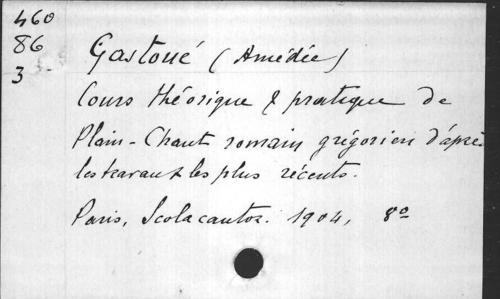 460
86
3
Gastoué (Amédée)
Cours théorique & pratique de
Plain-Chant romain grégorien d'après
les travaux les plus récents.
Paris, Scola cantor. 1904, 8º